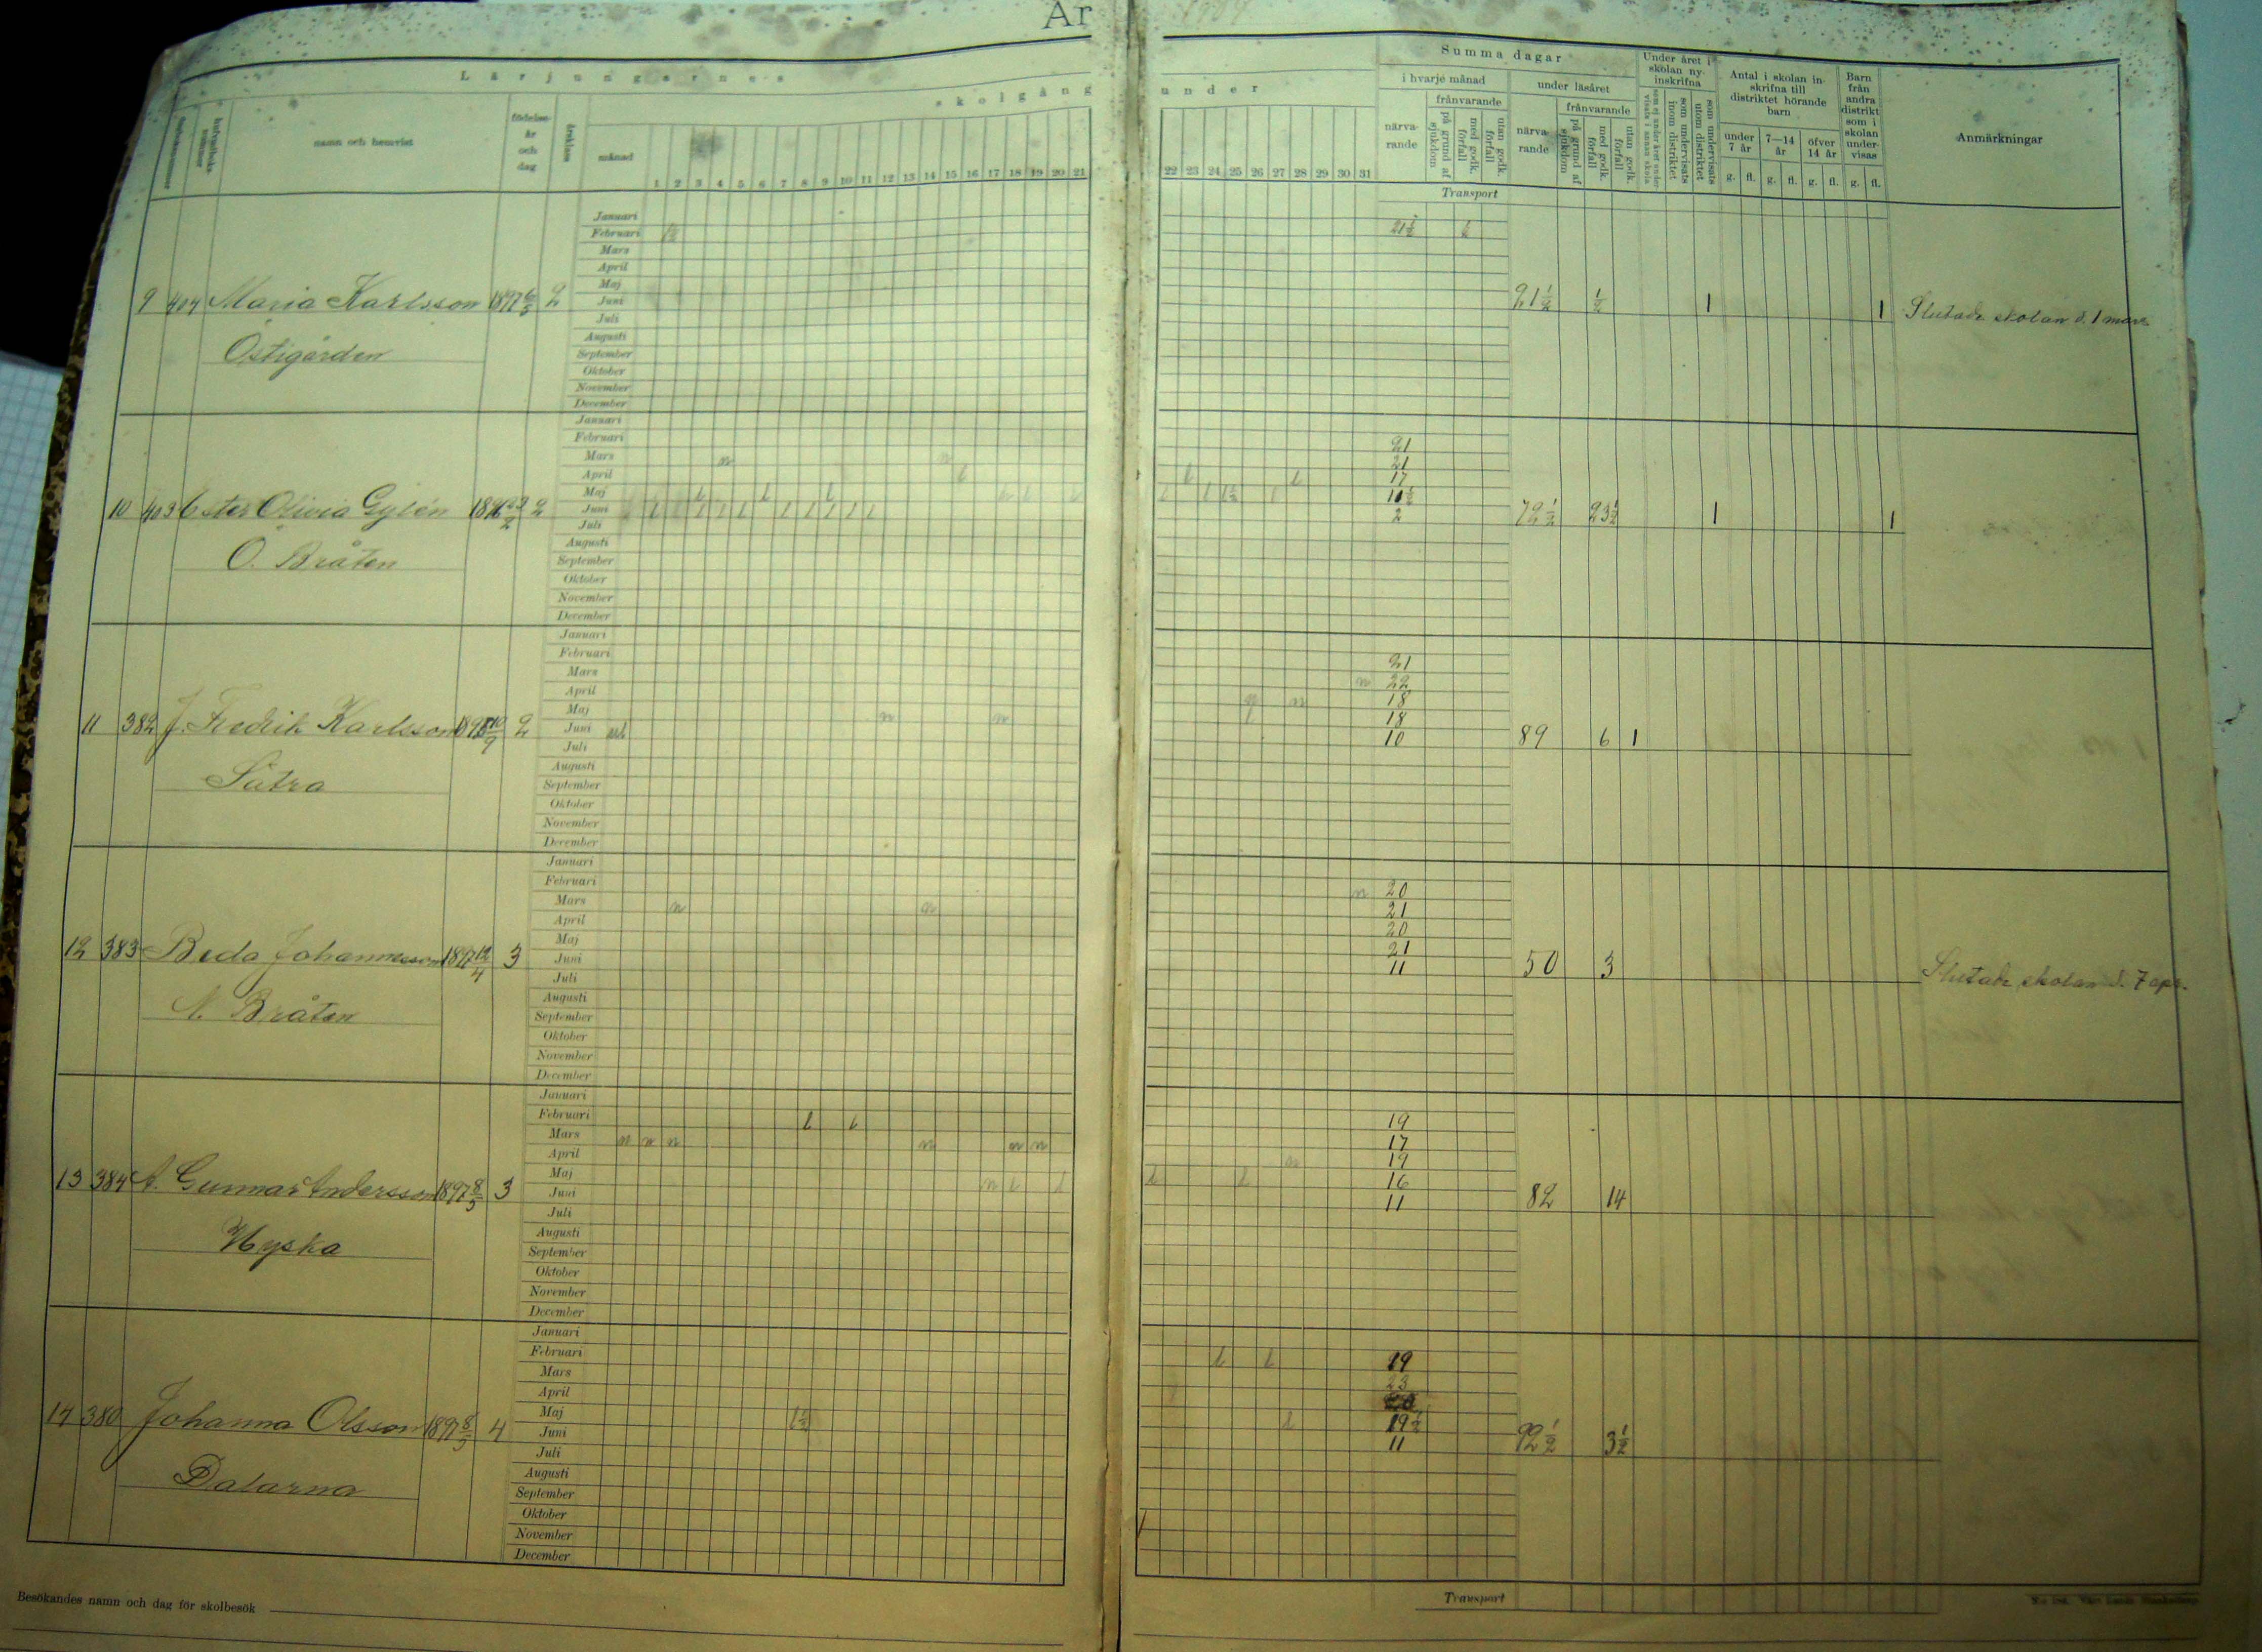 År
Lärjungarnes skolgång under
namn och hemvist
födelse-
år
och
dag
årsklass
månad
1 2 3 4 5 6 7 8 9 10 11 12 13 14 15 16 17 18 19 20 21
22 23 24 25 26 27 28 29 30 31
Summa dagar
i hvarje månad
under läsåret
närva-
rande
frånvarande
på grund af sjukdom
med godk. förfall
utan godk. förfall
närva-
rande
frånvarande
på grund af sjukdom
med godk. förfall
utan godk. förfall
Under året i
skolan ny-
inskrifna
som ej under året under-
visats i annan skola
som undervisats
inom distriktet
som undervisats
utom distriktet
Antal i skolan in-
skrifna till
distriktet hörande
barn
under
7 år
7—14
år
öfver
14 år
g. fl. g. fl. g. fl.
Barn
från
andra
distrikt
som i
skolan
under-
visas
g. fl.
Anmärkningar
Transport
9 404 Maria Karlsson 1897 6/5 2
Östigården
Januari
Februari 1/2 21 1/2
Mars
April
Maj
Juni
Juli
Augusti
September
Oktober
November
December
21 1/2 1/2 1 1 Slutade skolan d. 1 mars
10 403 Ester Olivia Gylén 1896 23/2 2
Ö. Bråten
Januari
Februari 21
Mars 21
April 17
Maj 11 1/2
Juni 2
Juli
Augusti
September
Oktober
November
December
72 1/2 23 1/2 1 1
11 382 J. Fredrik Karlsson 2
Sätra
Januari
Februari 21
Mars 22
April 18
Maj 18
Juni 10
Juli
Augusti
September
Oktober
November
December
89 6 1
12 383 Beda Johannesson 1897 12/4 3
N. Bråten
Januari
Februari 20
Mars 21
April 20
Maj 21
Juni 11
Juli
Augusti
September
Oktober
November
December
50 3 Slutade skolan d. 7 apr.
13 384 A. Gunnar Andersson 1897 8/5 3
Hyska
Januari
Februari 19
Mars 17
April 19
Maj 16
Juni 11
Juli
Augusti
September
Oktober
November
December
82 14
14 380 Johanna Olsson 1897 8/5 4
Dalarna
Januari
Februari 19
Mars 23
April 20
Maj 19 1/2
Juni 11
Juli
Augusti
September
Oktober
November
December
92 1/2 3 1/2
Transport
Besökandes namn och dag för skolbesök